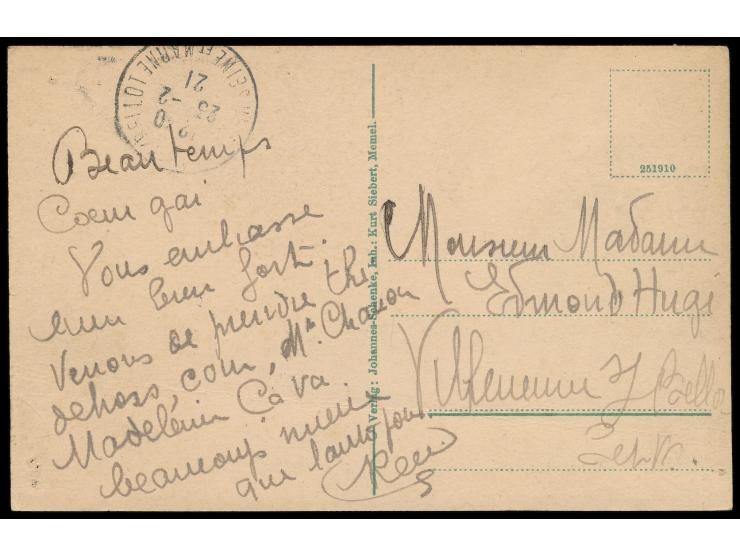 SEINE ET MARNE
23 -2
21
Beau temps
Coeur gai
Vous embrasse
bien fort.
Venons de prendre the
dehors, com, Mr Chanon
Madeleine Ca va
beaucoup mieux
que l'autre jour
Verlag: Johannes Schenke, Inh.: Kurt Siebert, Memel.
251910
Monsieur Madame
Edmond Hugi
Villeneuve s/ Bellot